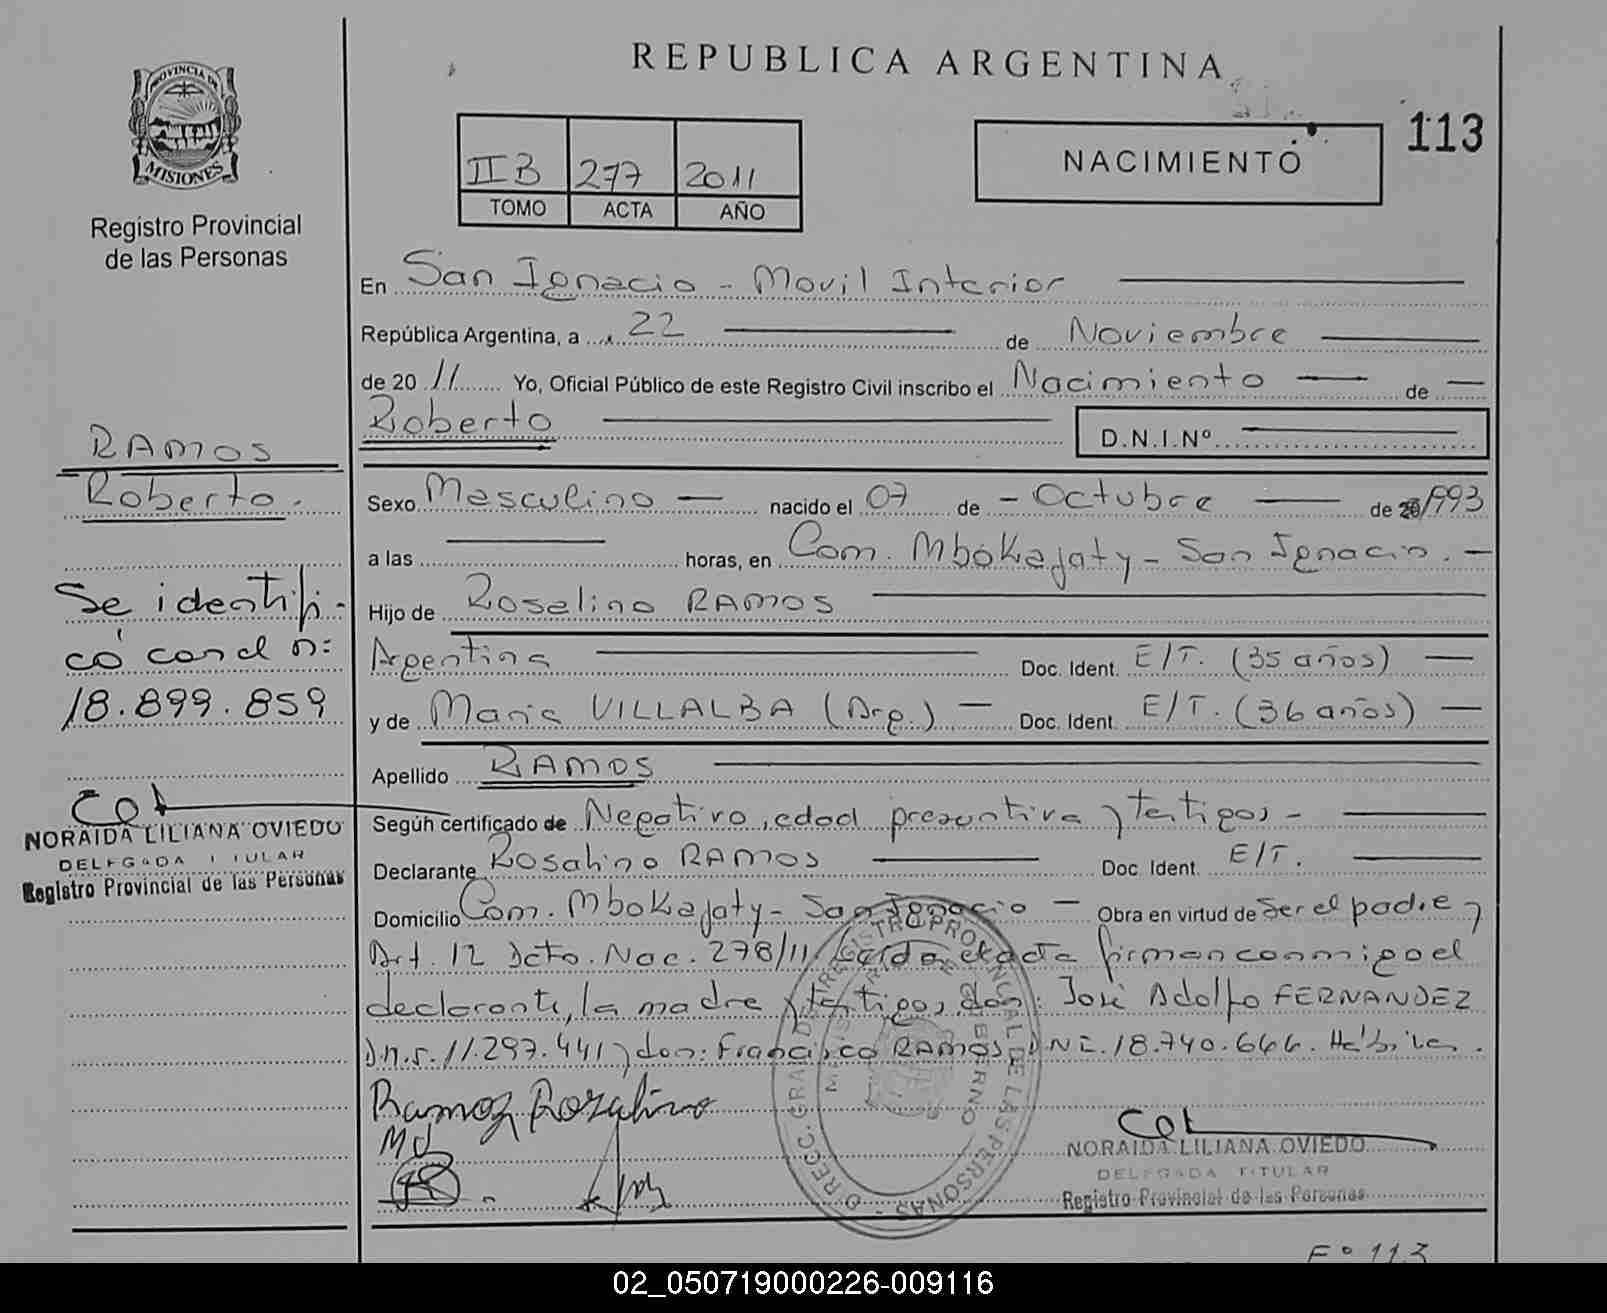 REPUBLICA ARGENTINA
PROVINCIA DE
MISIONES
Registro Provincial
de las Personas
II B 277 2011
TOMO ACTA AÑO
NACIMIENTO
113
En San Ignacio - Movil Interior
República Argentina, a 22 de Noviembre
de 2011 Yo, Oficial Público de este Registro Civil inscribo el Nacimiento de
Roberto D.N.I.Nº
RAMOS
Roberto.
Sexo Masculino nacido el 07 de - Octubre de 1993
a las horas, en Com. Mbokajaty - San Ignacio. -
Hijo de Roselino RAMOS
Argentina Doc. Ident. E/T. (35 años)
y de Maria VILLALBA (Arg.) Doc. Ident. E/T. (36 años)
Apellido RAMOS
Se identifi-
có con d n:
18.899.859
NORAIDA LILIANA OVIEDO
DELEGADA TITULAR
Registro Provincial de las Personas
Según certificado de Negativo, edad presuntiva y testigos -
Declarante Rosalino RAMOS Doc Ident. E/T.
Domicilio Com. Mbokajaty - San Ignacio - Obra en virtud de ser el padre y
Art. 12 Dcto. Nac. 278/11. Leída el acta firman conmigo el
declarante, la madre y testigos don: José Adolfo FERNANDEZ
D.n.i. 11.297.441 y don: Francisco RAMOS DNI. 18.740.646. Hábiles.
Ramoz Rozalino
MV
DIRECC. GRAL. DE REGISTRO PROVINCIAL DE LAS PERSONAS
GOBIERNO
NORAIDA LILIANA OVIEDO
DELEGADA TITULAR
Registro Provincial de las Personas
Fº 113
02_050719000226-009116